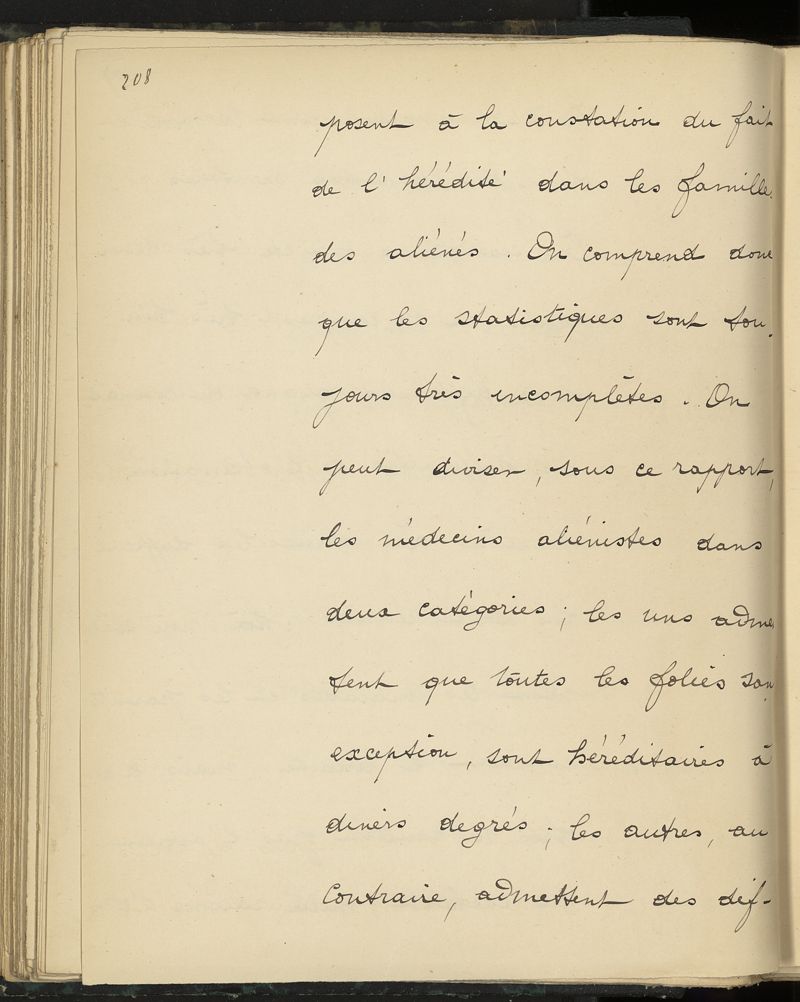 208
posent à la constation du fait
de l'hérédité dans les familles
des aliénés. On comprend donc
que les statistiques sont tou-
jours très incomplètes. On
peut diviser, sous ce rapport,
les médecins aliénistes dans
deux catégories; les uns admet
tent que toutes les foliès san
exception, sont héréditaires à
divers degrés; les autres, au
contraire, admettent des dif-